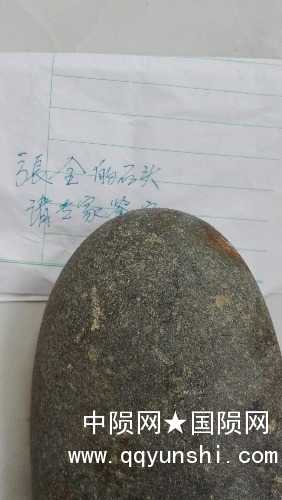 張全的石头
请专家鉴
中陨网★国陨网
www.qqyunshi.com